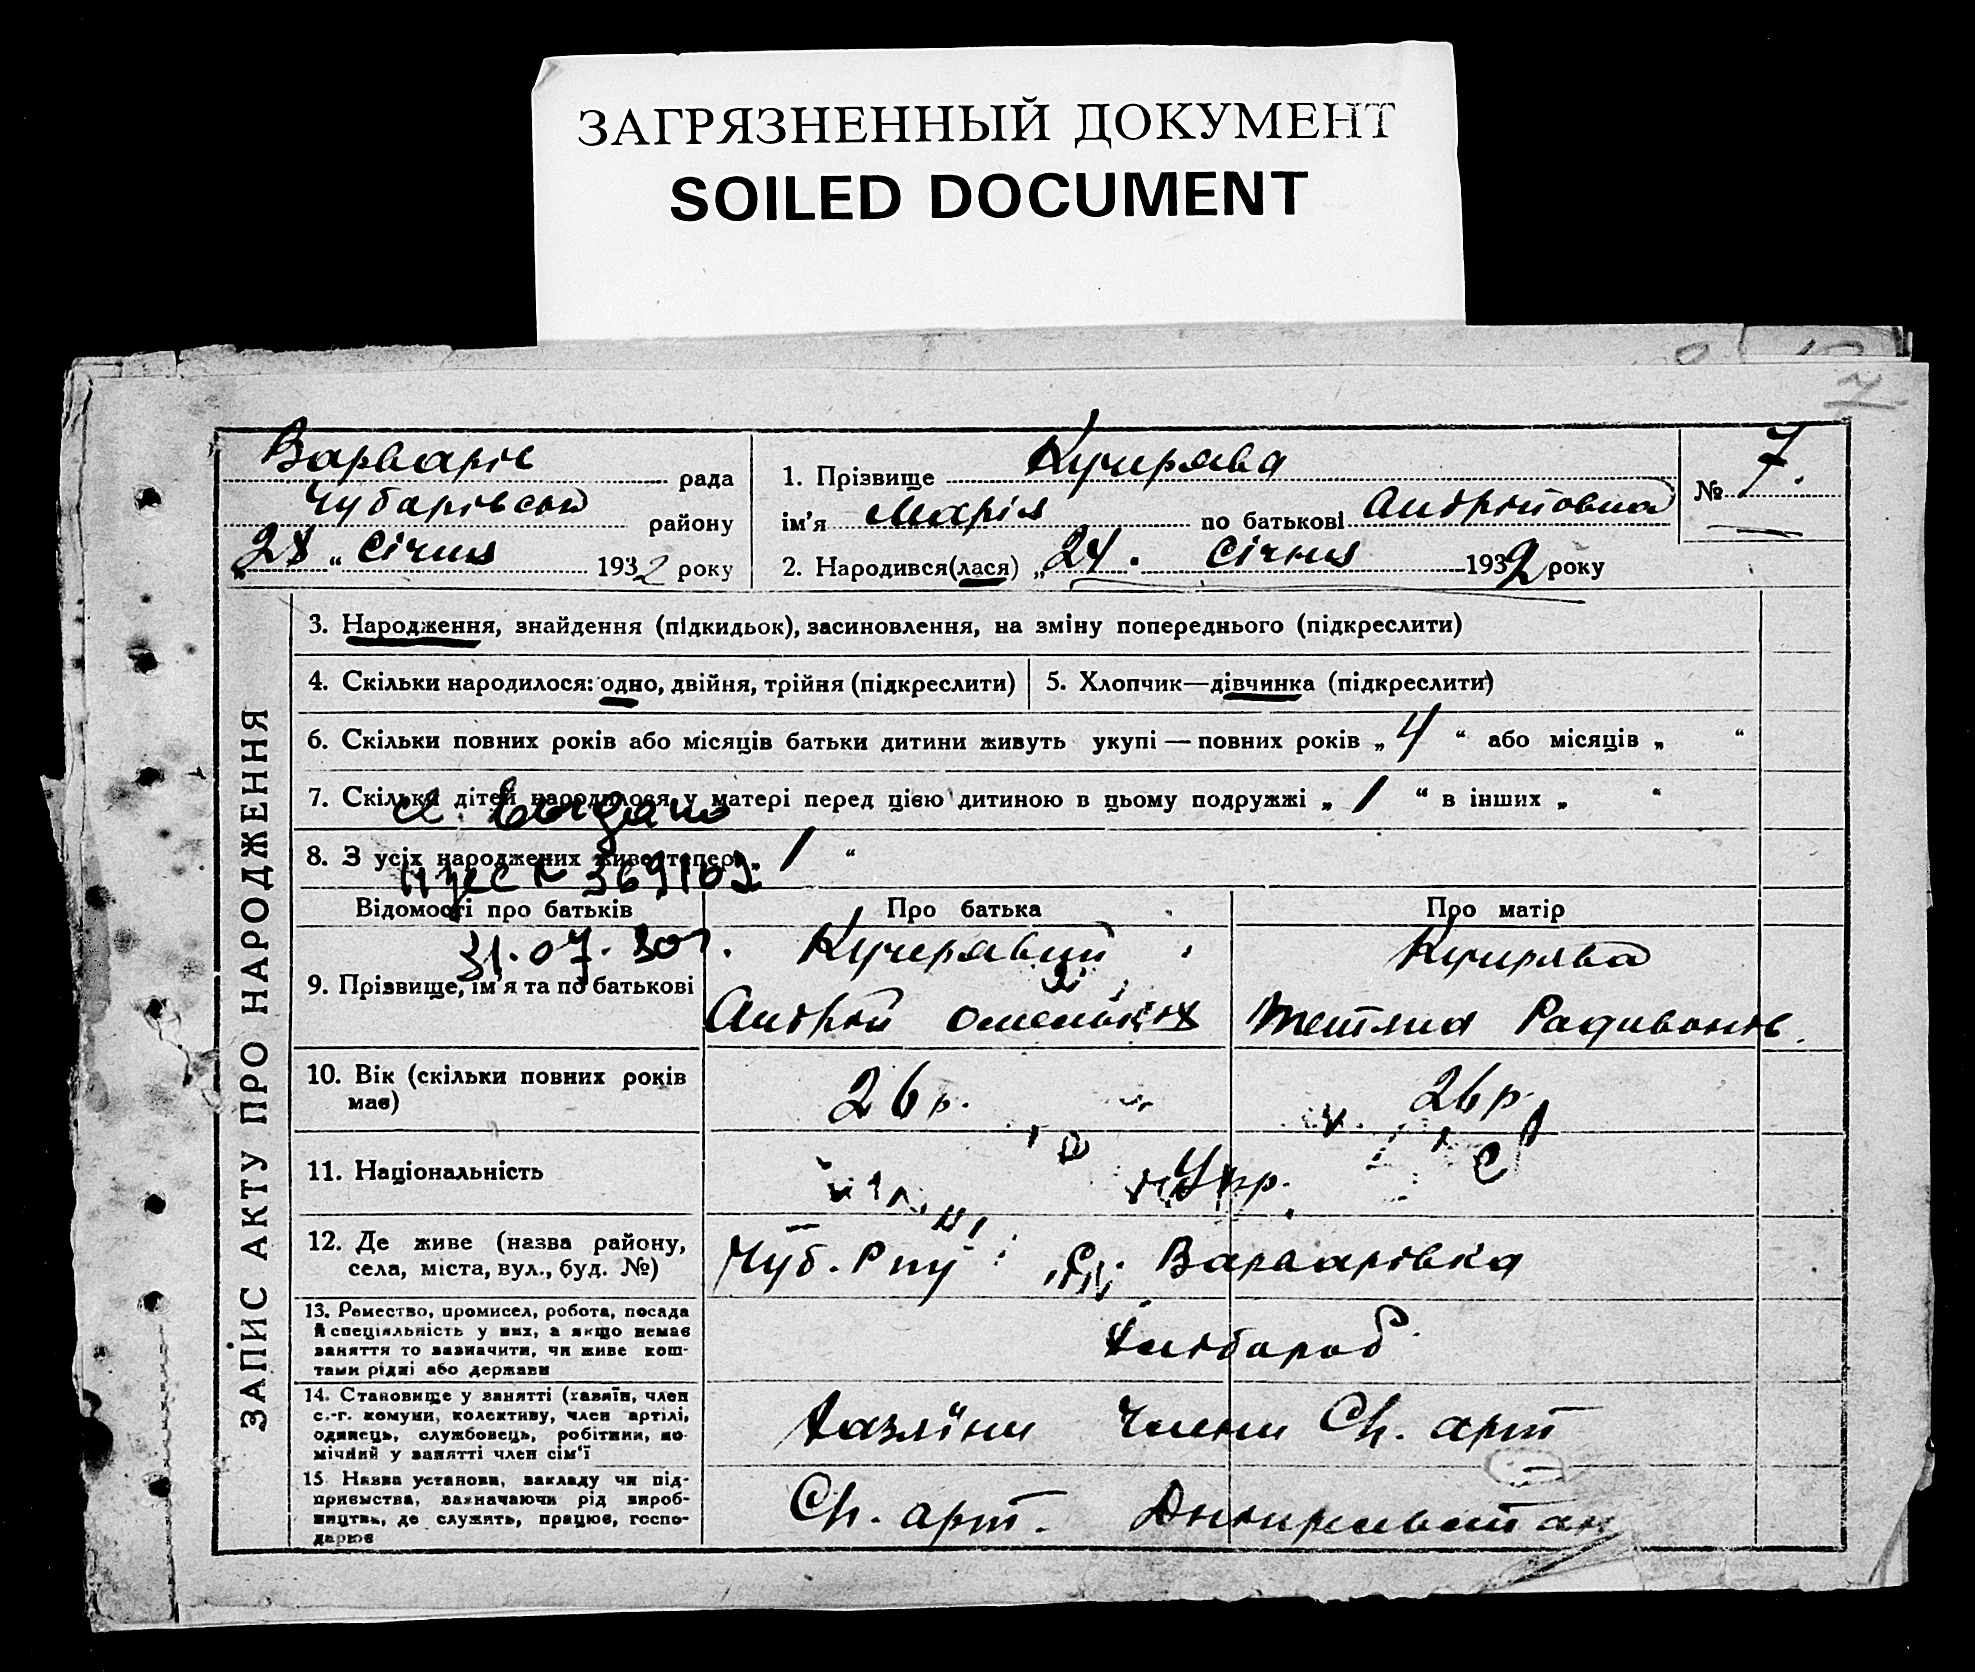 ЗАГРЯЗНЕННЫЙ ДОКУМЕНТ
SOILED DOCUMENT
7
Варварів рада
Чубарівськ району
„28“ Січня 1932 року
1. Прізвище Кучерява
ім'я Марія по батькові Андрійовна
2. Народився(лася) „24. Січня 1932 року
№ 7.
ЗАПИС АКТУ ПРО НАРОДЖЕННЯ
3. Народження, знайдення (підкидьок), засиновлення, на зміну попереднього (підкреслити)
4. Скільки народилося: одно, двійня, трійня (підкреслити)
5. Хлопчик—дівчинка (підкреслити)
6. Скільки повних років або місяців батьки дитини живуть укупі — повних років „4“ або місяців „ “
7. Скільки дітей народилося у матері перед цією дитиною в цьому подружжі „1“ в інших „ “
8. З усіх народжених живе тепер „1“
369109
31.07.
Відомості про батьків
Про батька
Про матір
9. Прізвище, ім'я та по батькові
Кучерявий
Андрій
Кучерява
Тетяна Радивонів
10. Вік (скільки повних років має)
26 р.
26 р.
11. Національність
Укр.
12. Де живе (назва району, села, міста, вул., буд. №)
Чуб. Р ну с. Варварівка
13. Ремество, промисел, робота, посада й спеціяльність у них, а якщо немає заняття то зазначити, чи живе коштами рідні або держави
Хлібороб
14. Становище у занятті (хазяїн, член с.-г. комуни, колективу, член артілі, одинець, службовець, робітник, помічний у занятті член сім'ї
Хазяїни Члени Сг. арт
15 Назва установи, закладу чи підприємства, зазначаючи рід виробництва, де служить, працює, господарює
Сг. арт.